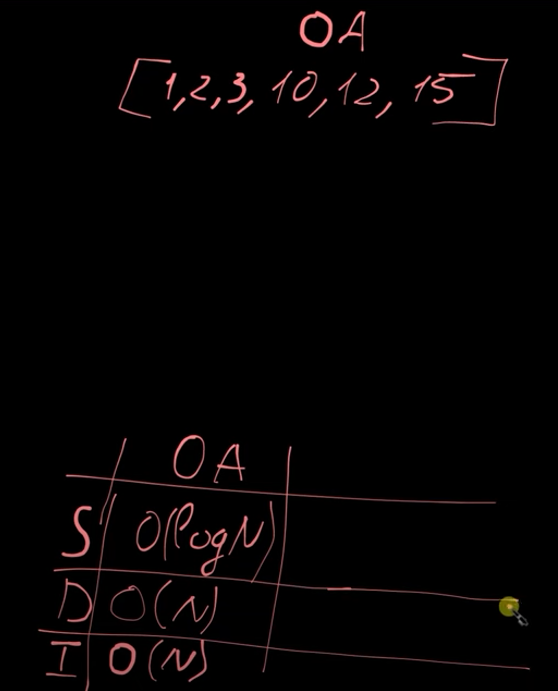 OA
[1,2,3, 10, 12, 15]
OA
S O(logN)
D O(N)
I O(N)